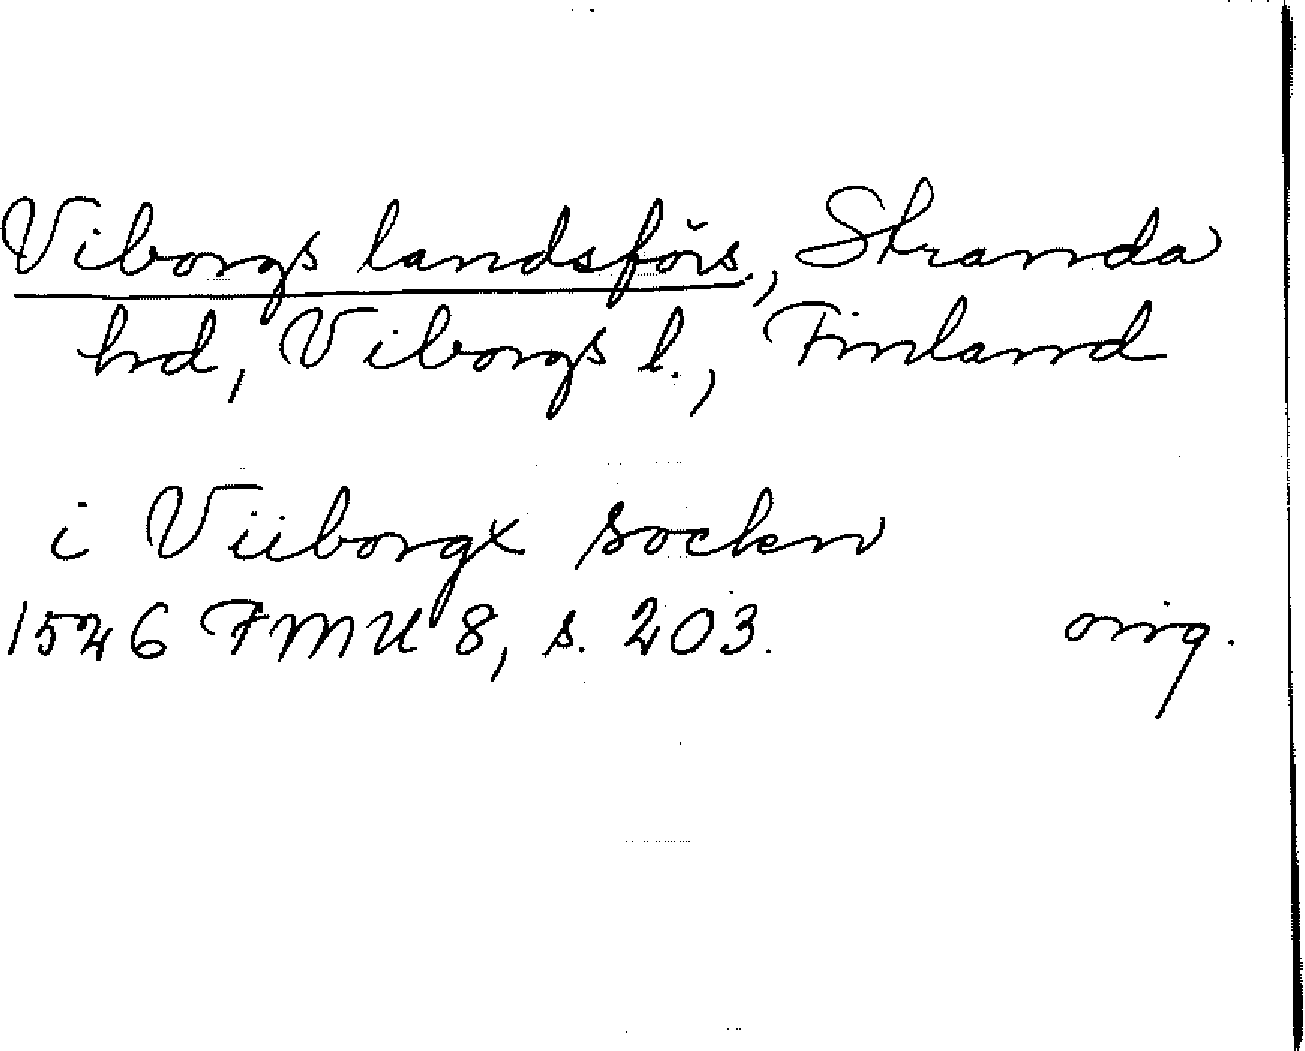 Viborgs landsförs., Stranda
hd, Viborgs l., Finland
i Viiborgx sockn
1526 FMU 8, s. 203. orig.